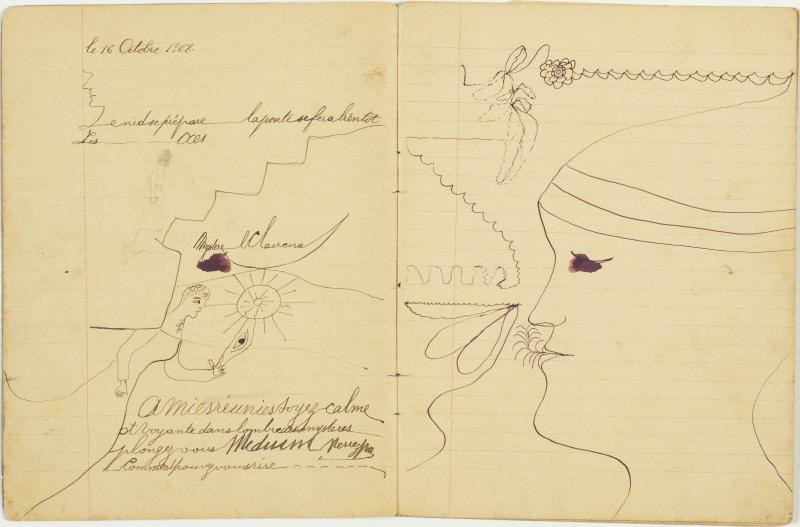 le 16 Octobre 1908
Le nid se prépare la ponte se fera bientôt
Les oies
Mystere
Amies réunies soyez calme
et voyante dans lombre des mysteres
plongez vous Medium
Comment pouvez vous rire